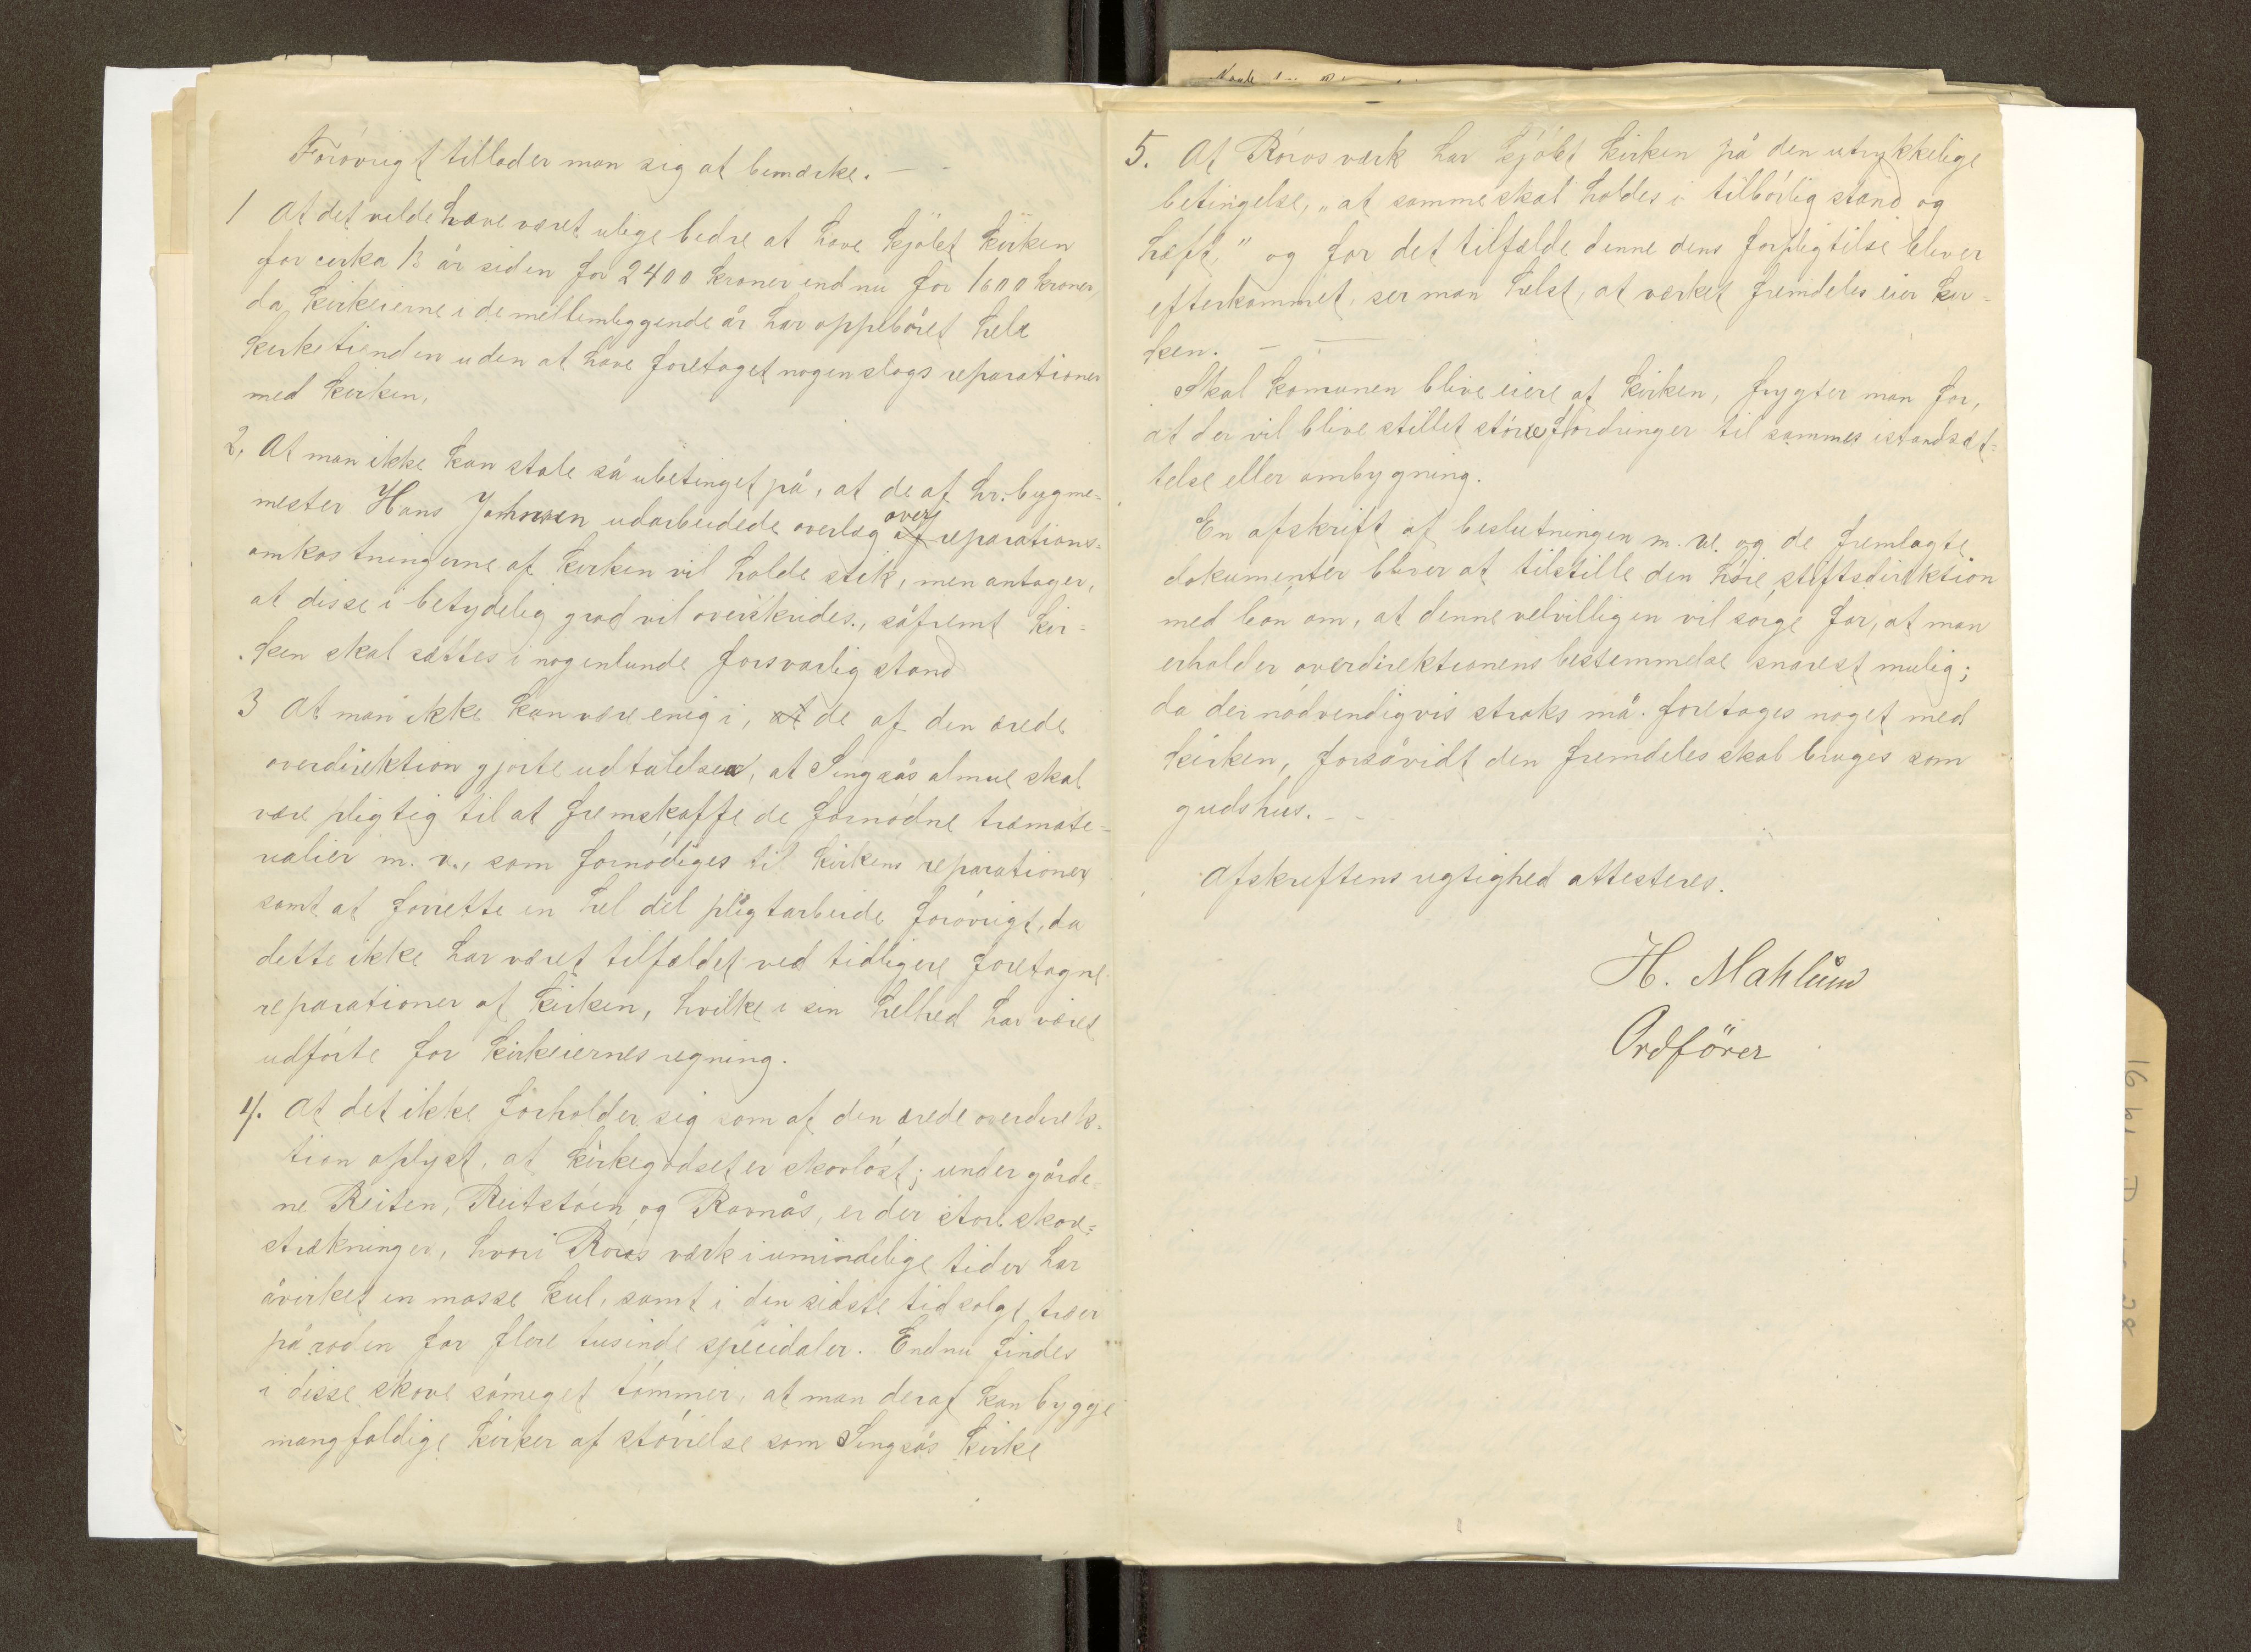 Forøvrigt tillader man sig at bemærke. —
1 At det vilde have været ulige bedre at have kjøbt kirken
for cirka 13 år siden for 2400 kroner end nu for 1600 kroner,
da kirkeierne i de mellemliggende år har oppebåret hele
kirketienden uden at have foretaget nogenslags reparationer
med kirken.
2. At man ikke kan stole så ubetinget på, at de af hr. bygme=
mester Hans Johnsen udarbeidede overlag over reparations=
omkostningerne af kirken vil holde stik, men antager,
at disse i betydelig grad vil overskrides, såfremt kir=
ken skal sættes i nogenlunde forsvarlig stand
3 At man ikke kan være enig i, de af den ærede
overdirektion gjorte udtalelser, at Singsås almue skal
være pligtig til at fremskaffe de fornødne træmate=
rialier m. v., som fornødiges til kirkens reparationer
samt at forrette en hel del pligtarbeide forøvrigt, da
dette ikke har været tilfældet ved tidligere foretagne
reparationer af kirken, hvilke i sin helhed har været
udførte for kirkeiernes regning.
4. At det ikke forholder sig som af den ærede overdirek=
tion oplyst, at kirkegodset er skovløst; under gårde
ne Reiten, Reitstøen og Ravnås, er der store skov=
strækninger, hvori Røros værk i umindelige tider har
åvirket en masse kul, samt i den sidste tid solgt træer
på roden for flere tusinde speciedaler. Endnu findes
i disse skove såmeget tømmer, at man deraf kan bygge
mangfoldige kirker af størrelse som Singsås kirke
5. At Røros værk har kjøbt kirken på den utrykkelige
betingelse, „at samme skal holdes i tilbørlig stand og
hæft," og for det tilfælde denne dens forpligtelse bliver
efterkommet, ser man helst, at værket fremdeles eier kir=
ken. — —
Skal komunen blive eiere af kirken, frygter man for,
at der vil blive stillet større fordringer til sammes istandsæt=
telse eller ombygning.
En afskrift af beslutningen m. v. og de fremlagte
dokumenter bliver at tilstille den høie stiftsdirektion
med bøn om, at denne velvilligen vil sørge for, at man
erholder overdirektionens bestemmelse snarest mulig;
da der nødvendigvis straks må foretages noget med
kirken, forsåvidt den fremdeles skal bruges som
gudshus. — —
Afskriftens rigtighed attesteres.
H. Mahlum
Ordfører